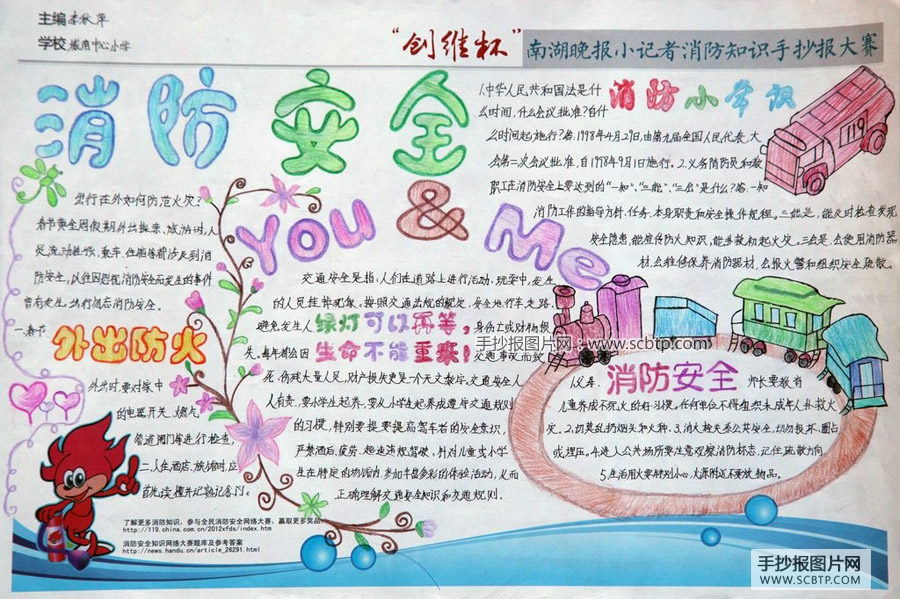 主编 李秋萍
学校 城南中心小学
"创维杯"南湖晚报小记者消防知识手抄报大赛
消防安全
You & Me
出行在外如何防范火灾?
安全。以往因忽视消防安全而发生的事件
曾有发生。出行勿忘消防安全。
外出防火
外出时,要对家中
的电器开关、燃气
管道阀门等进行检查。
二、人在酒店、旅馆时,应
交通安全是指:人们在道路上进行活动、玩耍中,发生
避免发生人
绿灯可以再等,
身伤亡或财物损
失。每年都会因
生命不能重来!
交通事故而致
死、伤残大量人员,财产损失更是一个天文数字。交通安全人
人有责,要从小学生起养成遵守交通规则
的习惯,特别要提高驾车者的安全意识,
正确理解交通安全知识和交通规则。
消防小常识
1.中华人民共和国法是什
么时间,什么会议批准?自什
么时间起施行?答:1998年4月29日,由第九届全国人民代表大
会第二次会议批准,自1998年9月1日施行。2.义务消防员和
职工在消防安全上要达到的"一知"、"三能"、"三会"是什么?答:一知
消防工作的指导方针、任务、本身职责和安全操作规程。三能是:能及时检查发现
安全隐患,能宣传防火知识,能扑救初起火灾。三会是:会使用消防器
材、会维修保养消防器材、会报火警和组织安全疏散。
119
消防安全
儿童养成不玩火的好习惯。任何单位不得组织未成年人扑救火
灾。2.切莫乱扔烟头和火种。3.消火栓关系公共安全,切勿损坏、圈占
或埋压。4.进入公共场所要注意观察消防标志,记住疏散方向。
5.生活用火要特别小心,火源附近不要放物品。
手抄报图片网
www.scbtp.com
了解更多消防知识,参与全民消防安全网络大赛,赢取更多奖品
http://119.china.com.cn/2012xfds/index.htm
消防安全知识网络大赛题库及参考答案
http://news.handu.cn/article_26291.html
手抄报图片网
WWW.SCBTP.COM